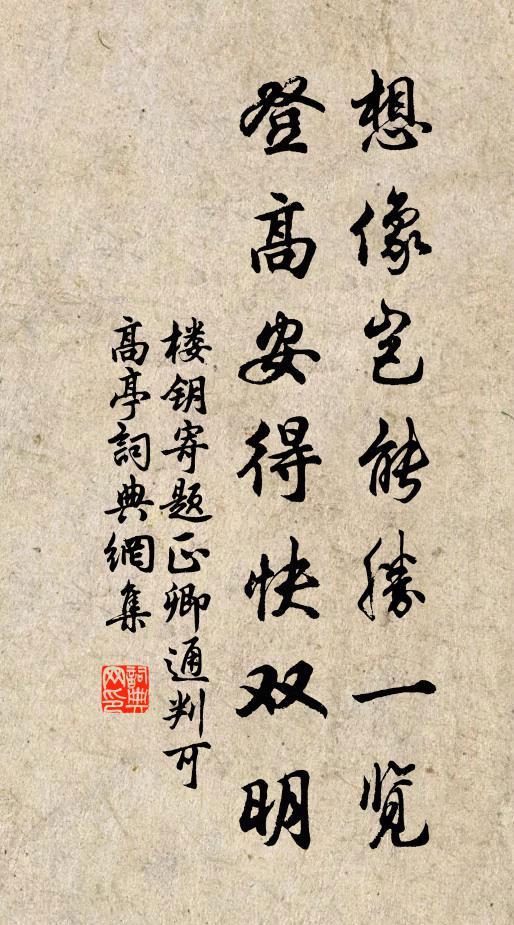 想像岂能勝一览
登高安得快双明
楼钥寄题正卿通判可
高亭詞典網集
詞典网印